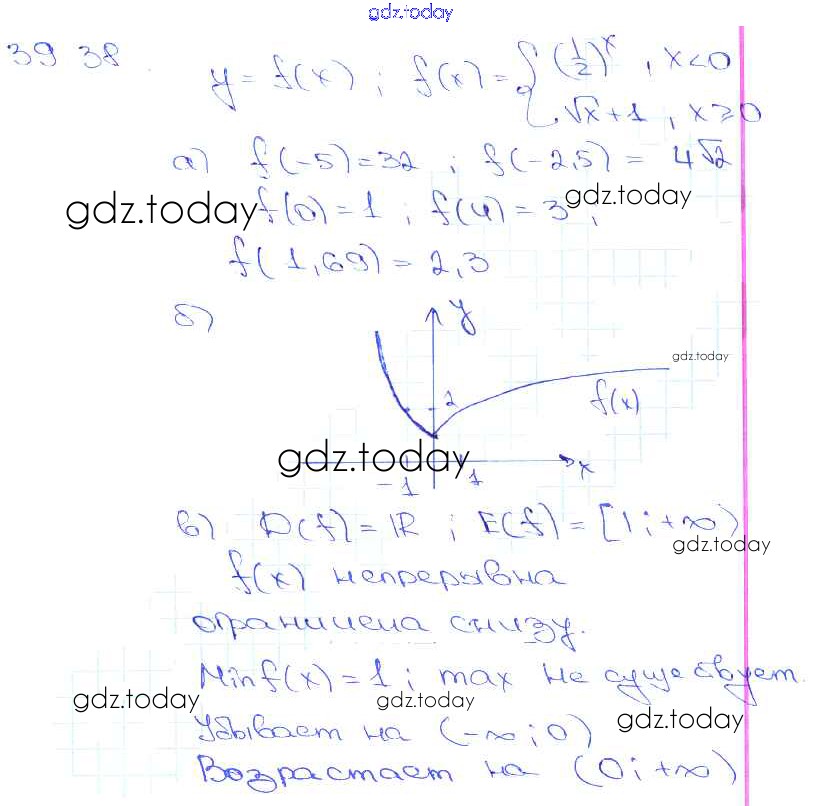 gdz.today
39 38. y = f(x) ; f(x) = { (1/2)^x , x < 0
√x + 1 , x ≥ 0
а) f(-5) = 32 ; f(-2,5) = 4√2
gdz.today f(0) = 1 ; f(4) = 3 ; gdz.today
f(1,69) = 2,3
б) y
gdz.today
2 f(x)
gdz.today x
-1 1
в) D(f) = ℝ ; E(f) = [1 ; +∞)
gdz.today
f(x) непрерывна
ограничена снизу.
Min f(x) = 1 ; max не существует.
gdz.today gdz.today gdz.today
Убывает на (-∞ ; 0)
Возрастает на (0 ; +∞)